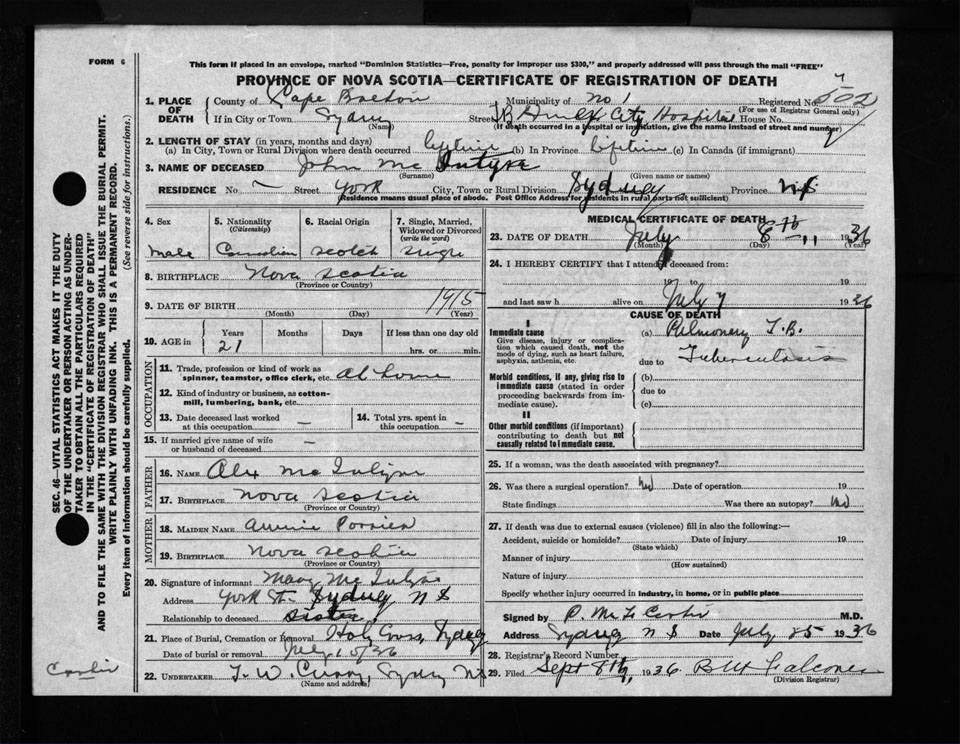 FORM 6
This form if placed in an envelope, marked "Dominion Statistics—Free, penalty for improper use $300," and properly addressed will pass through the mail "FREE"
PROVINCE OF NOVA SCOTIA—CERTIFICATE OF REGISTRATION OF DEATH
1. PLACE OF DEATH County of Cape Breton Municipality of No 1 Registered No. 522
(For use of Registrar General only)
If in City or Town Sydney Street City Hospital House No.
(Name) (If death occurred in a hospital or institution, give the name instead of street and number)
2. LENGTH OF STAY (in years, months and days)
(a) In City, Town or Rural Division where death occurred lifetime (b) In Province lifetime (c) In Canada (if immigrant)
3. NAME OF DECEASED John Mc Intyre
(Surname) (Given name or names)
RESIDENCE No — Street York City, Town or Rural Division Sydney Province N.S.
(Residence means usual place of abode. Post Office Address for residents in rural parts not sufficient)
4. Sex 5. Nationality (Citizenship) 6. Racial Origin 7. Single, Married, Widowed or Divorced (write the word)
male Canadian Scotch single
8. BIRTHPLACE Nova Scotia
(Province or Country)
9. DATE OF BIRTH 1915
(Month) (Day) (Year)
10. AGE in Years Months Days If less than one day old
21 hrs. or min.
OCCUPATION
11. Trade, profession or kind of work as spinner, teamster, office clerk, etc. At home
12. Kind of industry or business, as cotton-mill, lumbering, bank, etc.
13. Date deceased last worked at this occupation — 14. Total yrs. spent in this occupation —
15. If married give name of wife or husband of deceased —
FATHER
16. NAME Alex Mc Intyre
17. BIRTHPLACE Nova Scotia
(Province or Country)
MOTHER
18. MAIDEN NAME Annie
19. BIRTHPLACE Nova Scotia
(Province or Country)
20. Signature of informant Mary Mc Intyre
Address York St. Sydney N S
Relationship to deceased sister
21. Place of Burial, Cremation or Removal Holy Cross, Sydney
Date of burial or removal July 10/36
22. UNDERTAKER T. W. Curry, Sydney N.S.
(Name and address)
MEDICAL CERTIFICATE OF DEATH
23. DATE OF DEATH July 8th 1936
(Month) (Day)
24. I HEREBY CERTIFY that I attended deceased from:
19 to 19
and last saw h alive on July 7 1936
CAUSE OF DEATH
I
Immediate cause
Give disease, injury or complication which caused death, not the mode of dying, such as heart failure, asphyxia, asthenia, etc.
(a) Pulmonary T.B.
due to Tuberculosis
Morbid conditions, if any, giving rise to immediate cause (stated in order proceeding backwards from immediate cause).
(b)
due to
(c)
II
Other morbid conditions (if important) contributing to death but not causally related to immediate cause.
25. If a woman, was the death associated with pregnancy?
26. Was there a surgical operation? No Date of operation 19
State findings Was there an autopsy? No
27. If death was due to external causes (violence) fill in also the following:—
Accident, suicide or homicide? Date of injury 19
(State which)
Manner of injury
(How sustained)
Nature of injury
Specify whether injury occurred in industry, in home, or in public place
Signed by M.D.
Address Sydney N S Date July 25 1936
28. Registrar's Record Number
29. Filed Sept 8th, 1936
(Division Registrar)
SEC. 46—VITAL STATISTICS ACT MAKES IT THE DUTY
OF THE UNDERTAKER OR PERSON ACTING AS UNDERTAKER TO OBTAIN ALL THE PARTICULARS REQUIRED
IN THE "CERTIFICATE OF REGISTRATION OF DEATH"
AND TO FILE THE SAME WITH THE DIVISION REGISTRAR WHO SHALL ISSUE THE BURIAL PERMIT.
WRITE PLAINLY WITH UNFADING INK. THIS IS A PERMANENT RECORD.
Every item of information should be carefully supplied. (See reverse side for instructions.)